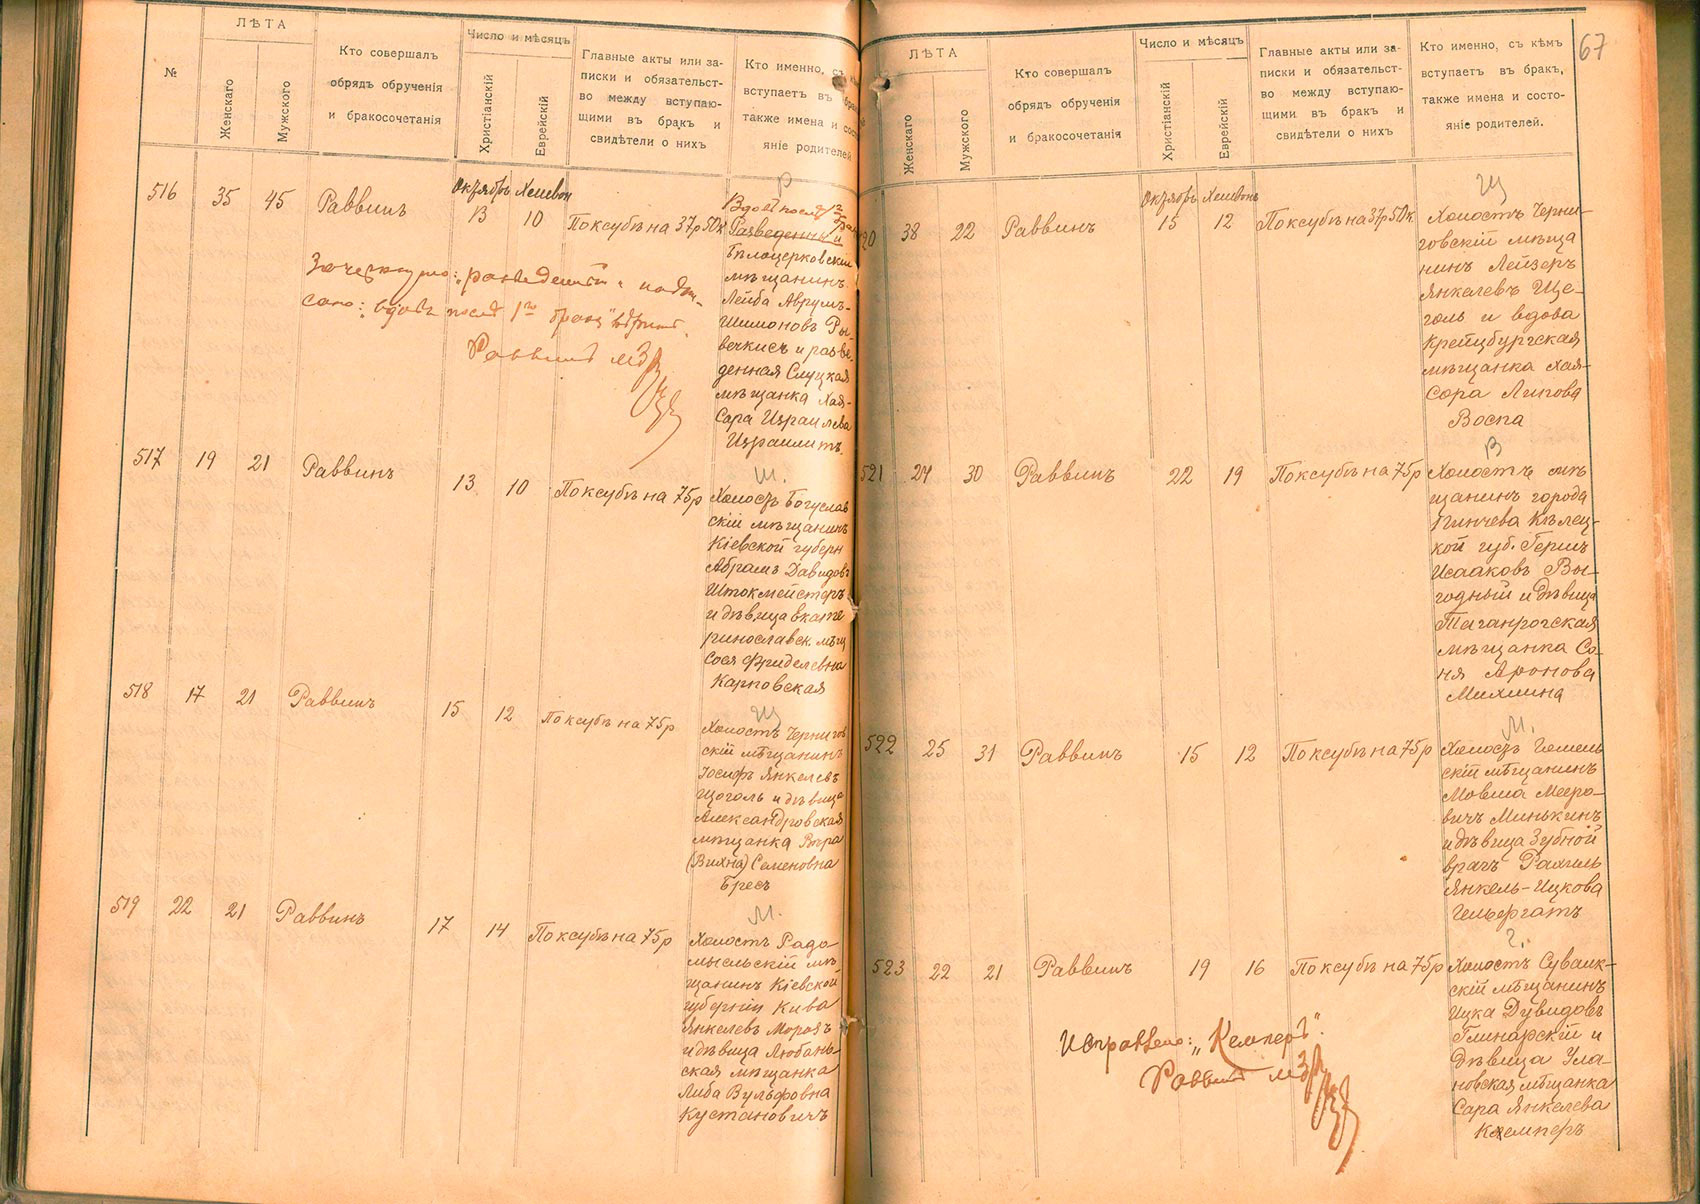 №
ЛѢТА
Женскаго
Мужского
Кто совершалъ
обрядъ обрученія
и бракосочетанія
Число и мѣсяцъ
Христіанскій
Еврейскій
Главные акты или за-
писки и обязательст-
во между вступаю-
щими въ бракъ и
свидѣтели о нихъ
Кто именно, съ
вступаетъ въ
также имена и состо
яніе родителей
516
35
45
Раввинъ
Октябрь Хешвон
13
10
Поксубѣ на 37р 50к
Р
Вдов послѣ 1го
Разведенный
Бѣлоцерковскій
мѣщанинъ
Лейба Аврумъ-
Шимоновъ Ры-
вечкисъ и разве-
денная Слуцкая
мѣщанка Хая-
Сара Израилева
Израилитъ.
Зачеркнуто: "разведенный" надпи-
сано: "вдовъ послѣ 1го брака" вѣрно.
Раввинъ
517
19
21
Раввинъ
13
10
Поксубѣ на 75р
Ш.
Холостъ Богуслав
скій мѣщанинъ
Кіевской губерн
Абрамъ Давидовъ
Штокмейстеръ
и дѣвица Екате
ринославск. мѣщ
Сося Фриделевна
Карповская
518
17
21
Раввинъ
15
12
Поксубѣ на 75р
Щ
Холостъ Чернигов
скій мѣщанинъ
Іосифъ Янкелевъ
Щоголь и дѣвица
Александровская
мѣщанка Вѣра
(Вихна) Семеновна
Бресъ
519
22
21
Раввинъ
17
14
Поксубѣ на 75р
М.
Холостъ Радо
мысльскій мѣ
щанинъ Кіевской
губерніи Кива
Янкелевъ Морозъ
и дѣвица Любань-
ская мѣщанка
Либа Вульфовна
Кустановичъ
67
ЛѢТА
Женскаго
Мужского
Кто совершалъ
обрядъ обрученія
и бракосочетанія
Число и мѣсяцъ
Христіанскій
Еврейскій
Главные акты или за-
писки и обязательст-
во между вступаю-
щими въ бракъ и
свидѣтели о нихъ
Кто именно, съ кѣмъ
вступаетъ въ бракъ,
также имена и состо-
яніе родителей.
20
38
22
Раввинъ
Октябрь Хешвонъ
15
12
Поксубѣ на 37р 50к
Щ
Холостъ Черни-
говскій мѣща
нинъ Лейзеръ
Янкелевъ Ще-
голь и вдова
Крейцбургская
мѣщанка Хая-
Сора Липова
Воспа
521
24
30
Раввинъ
22
19
Поксубѣ на 75р
В
Холостъ мѣ
щанинъ города
Пинчева Кѣлец-
кой губ. Гершъ
Исааковъ Вы-
годный и дѣвица
Таганрогская
мѣщанка Со-
ня Аронова
Михлина
522
25
31
Раввинъ
15
12
Поксубѣ на 75р
М.
Холостъ Гомель
скій мѣщанинъ
Мовша Мееро-
вичъ Минькинъ
и дѣвица Зубной
врачъ Рахиль
Янкель-Ицкова
Гельфгатъ
523
22
21
Раввинъ
19
16
Поксубѣ на 75р
Г.
Холостъ Сувалк-
скій мѣщанинъ
Ицка Дувидовъ
Глинарскій и
дѣвица Ула-
новская мѣщанка
Сара Янкелева
Кемперъ
Исправлено: "Кемперъ".
Раввинъ